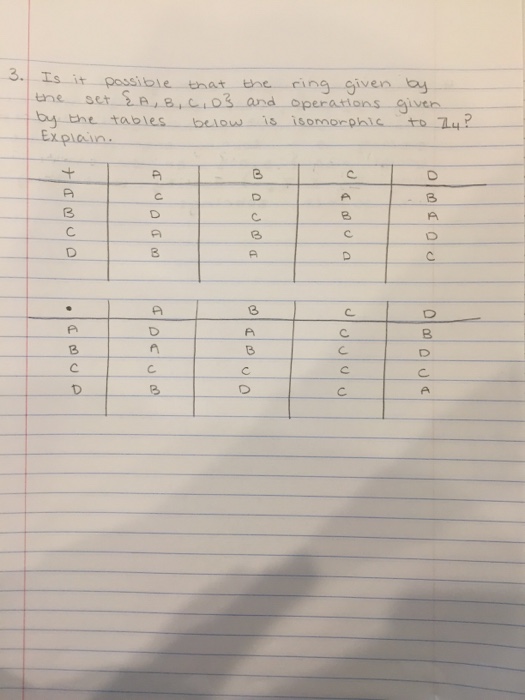 3. Is it possible that the ring given by
the set {A, B, C, D} and operations given
by the tables below is isomorphic to ℤ4?
Explain.
+ A B C D
A C D A B
B D C B A
C A B C D
D B A D C
• A B C D
A D A C B
B A B C D
C C C C C
D B D C A